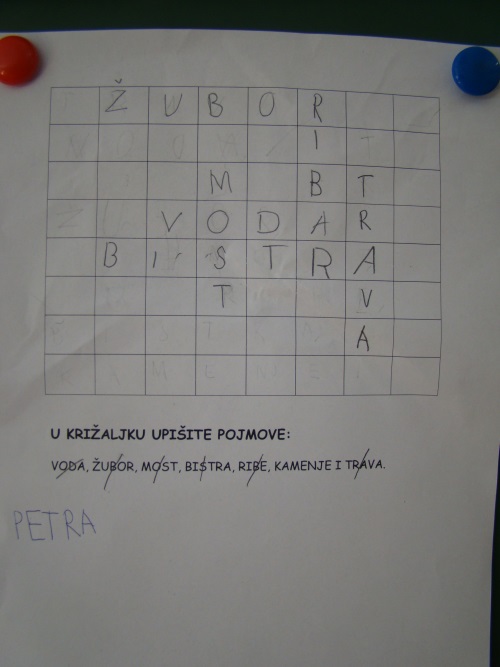 Ž U B O R
I
M B T
V O D A R
B I S T R A
T V
A
U KRIŽALJKU UPIŠITE POJMOVE:
VODA, ŽUBOR, MOST, BISTRA, RIBE, KAMENJE I TRAVA.
PETRA